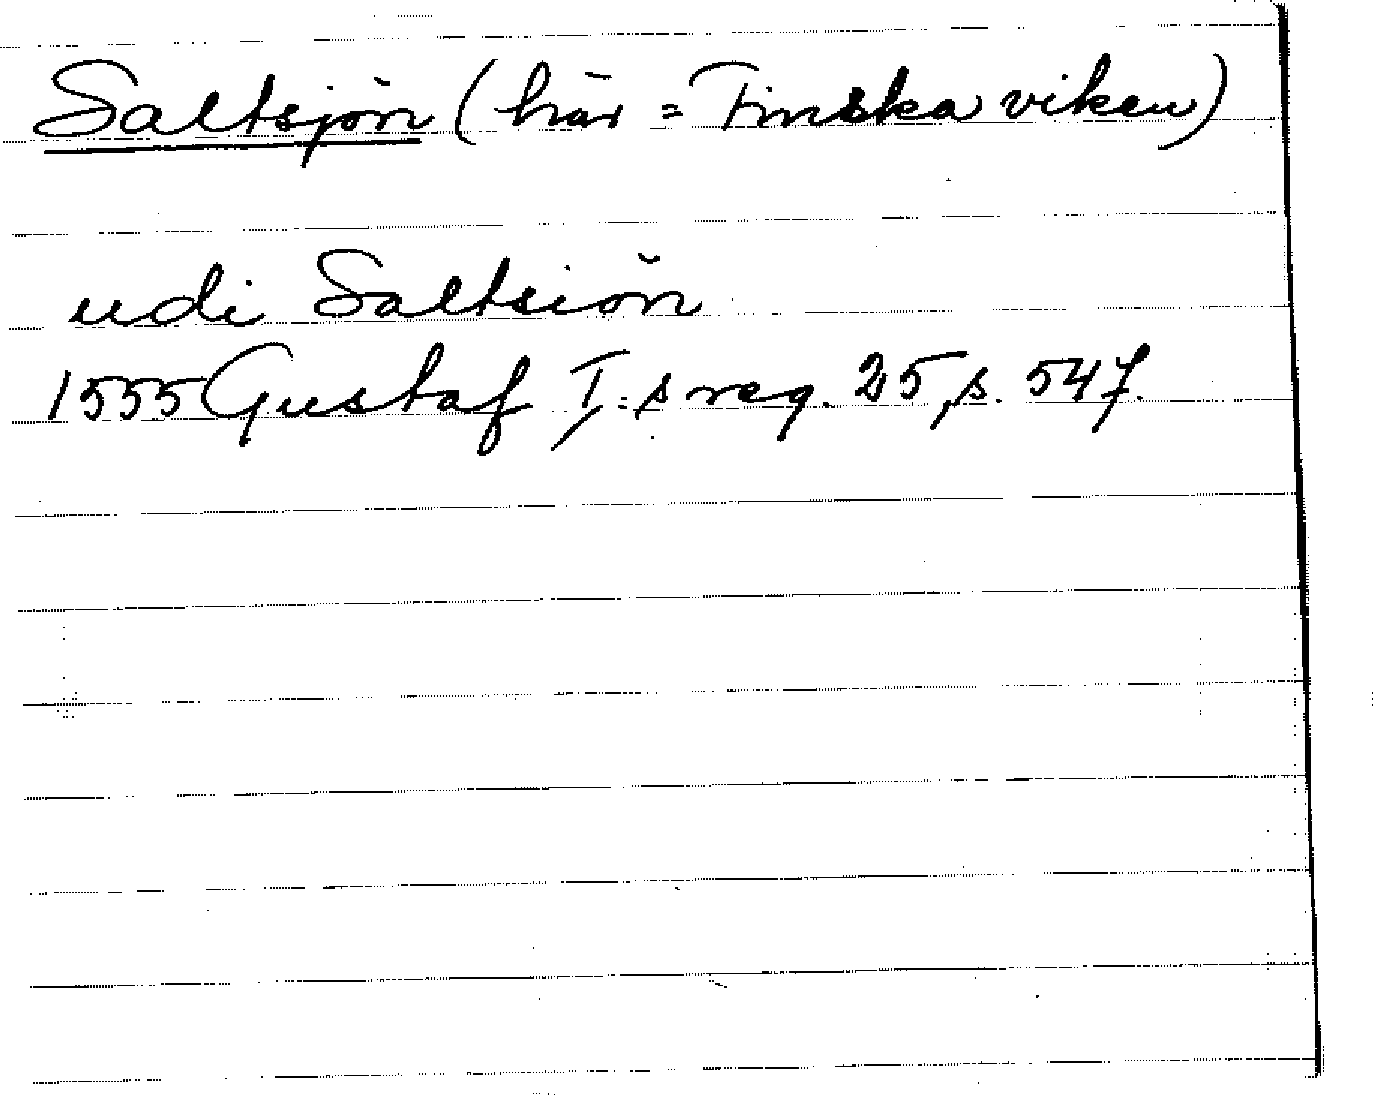 Saltsjön (här = Finska viken)
udi Saltsiön
1555 Gustaf I:s reg. 25, s. 547.